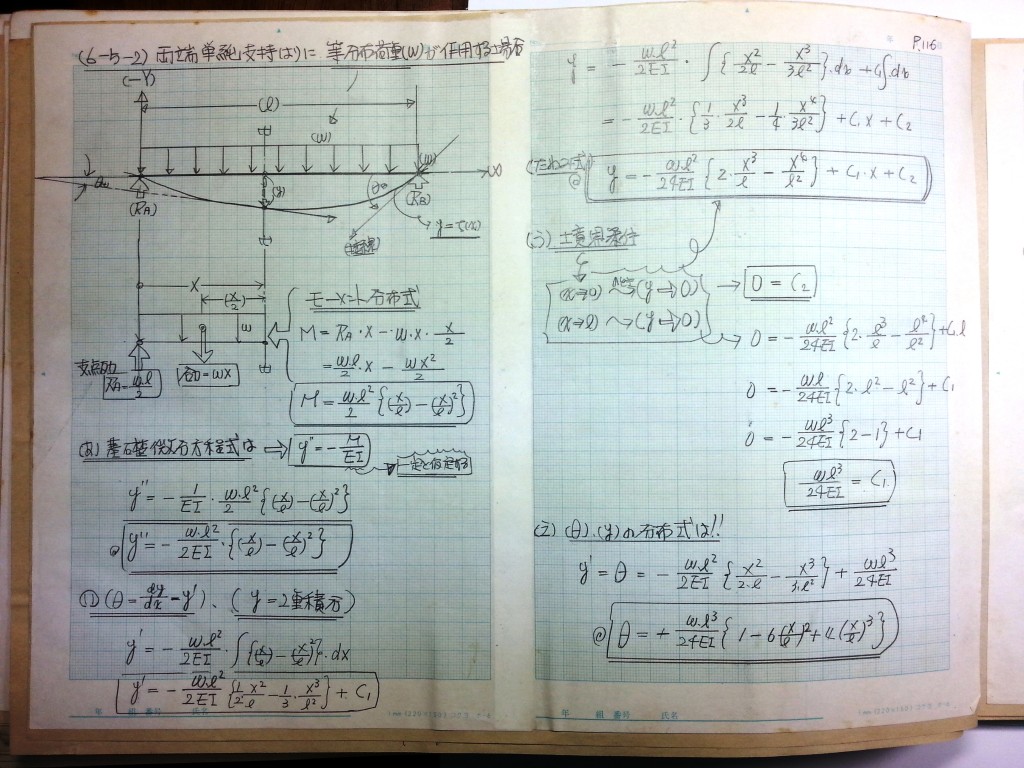 (6-5-2) 両端単純支持はりに等分布荷重(w)が作用する場合
(-Y)
(l)
(w)
(w)
X
(RA)
(y)
θB
(RB)
y=f(x)
X
(x/2)
w
支点反力
RA=wl/2
合力=wx
モーメント分布式
M = RA・x - w・x・x/2
= wl/2・x - wx²/2
M = w・l²/2 {(x/l)-(x/l)²}
(あ) 基礎微分方程式は ⇒ y''=-M/EI
一定と仮定する
y'' = -1/EI・w・l²/2 {(x/l)-(x/l)²}
@ y'' = -w・l²/2EI・{(x/l)-(x/l)²}
(い) (θ=dy/dx=y')、(y=2重積分)
y' = -w・l²/2EI・∫{(x/l)-(x/l)²}・dx
y' = -w・l²/2EI {1/2・x²/l - 1/3・x³/l²} + C₁
年 組 番号 氏名
P.116
y = -w・l²/2EI・∫{x²/2l - x³/3l²}・dx + C₁∫dx
= -w・l²/2EI・{1/3・x³/2l - 1/4・x⁴/3l²} + C₁x + C₂
(たわみ式)
@ y = -w・l²/24EI {2・x³/l - x⁴/l²} + C₁・x + C₂
(う) 境界条件
(x→0) (y→0) → 0 = C₂
(x→l) (y→0)
0 = -w・l²/24EI {2・l³/l - l⁴/l²} + C₁l
0 = -wl/24EI {2・l²-l²} + C₁
0 = -wl³/24EI {2-1} + C₁
wl³/24EI = C₁
(え) (θ)、(y)の分布式は!!
y' = θ = -w・l²/2EI {x²/2・l - x³/3・l²} + wl³/24EI
@ θ = +w・l³/24EI {1-6(x/l)²+4(x/l)³}
年 組 番号 氏名